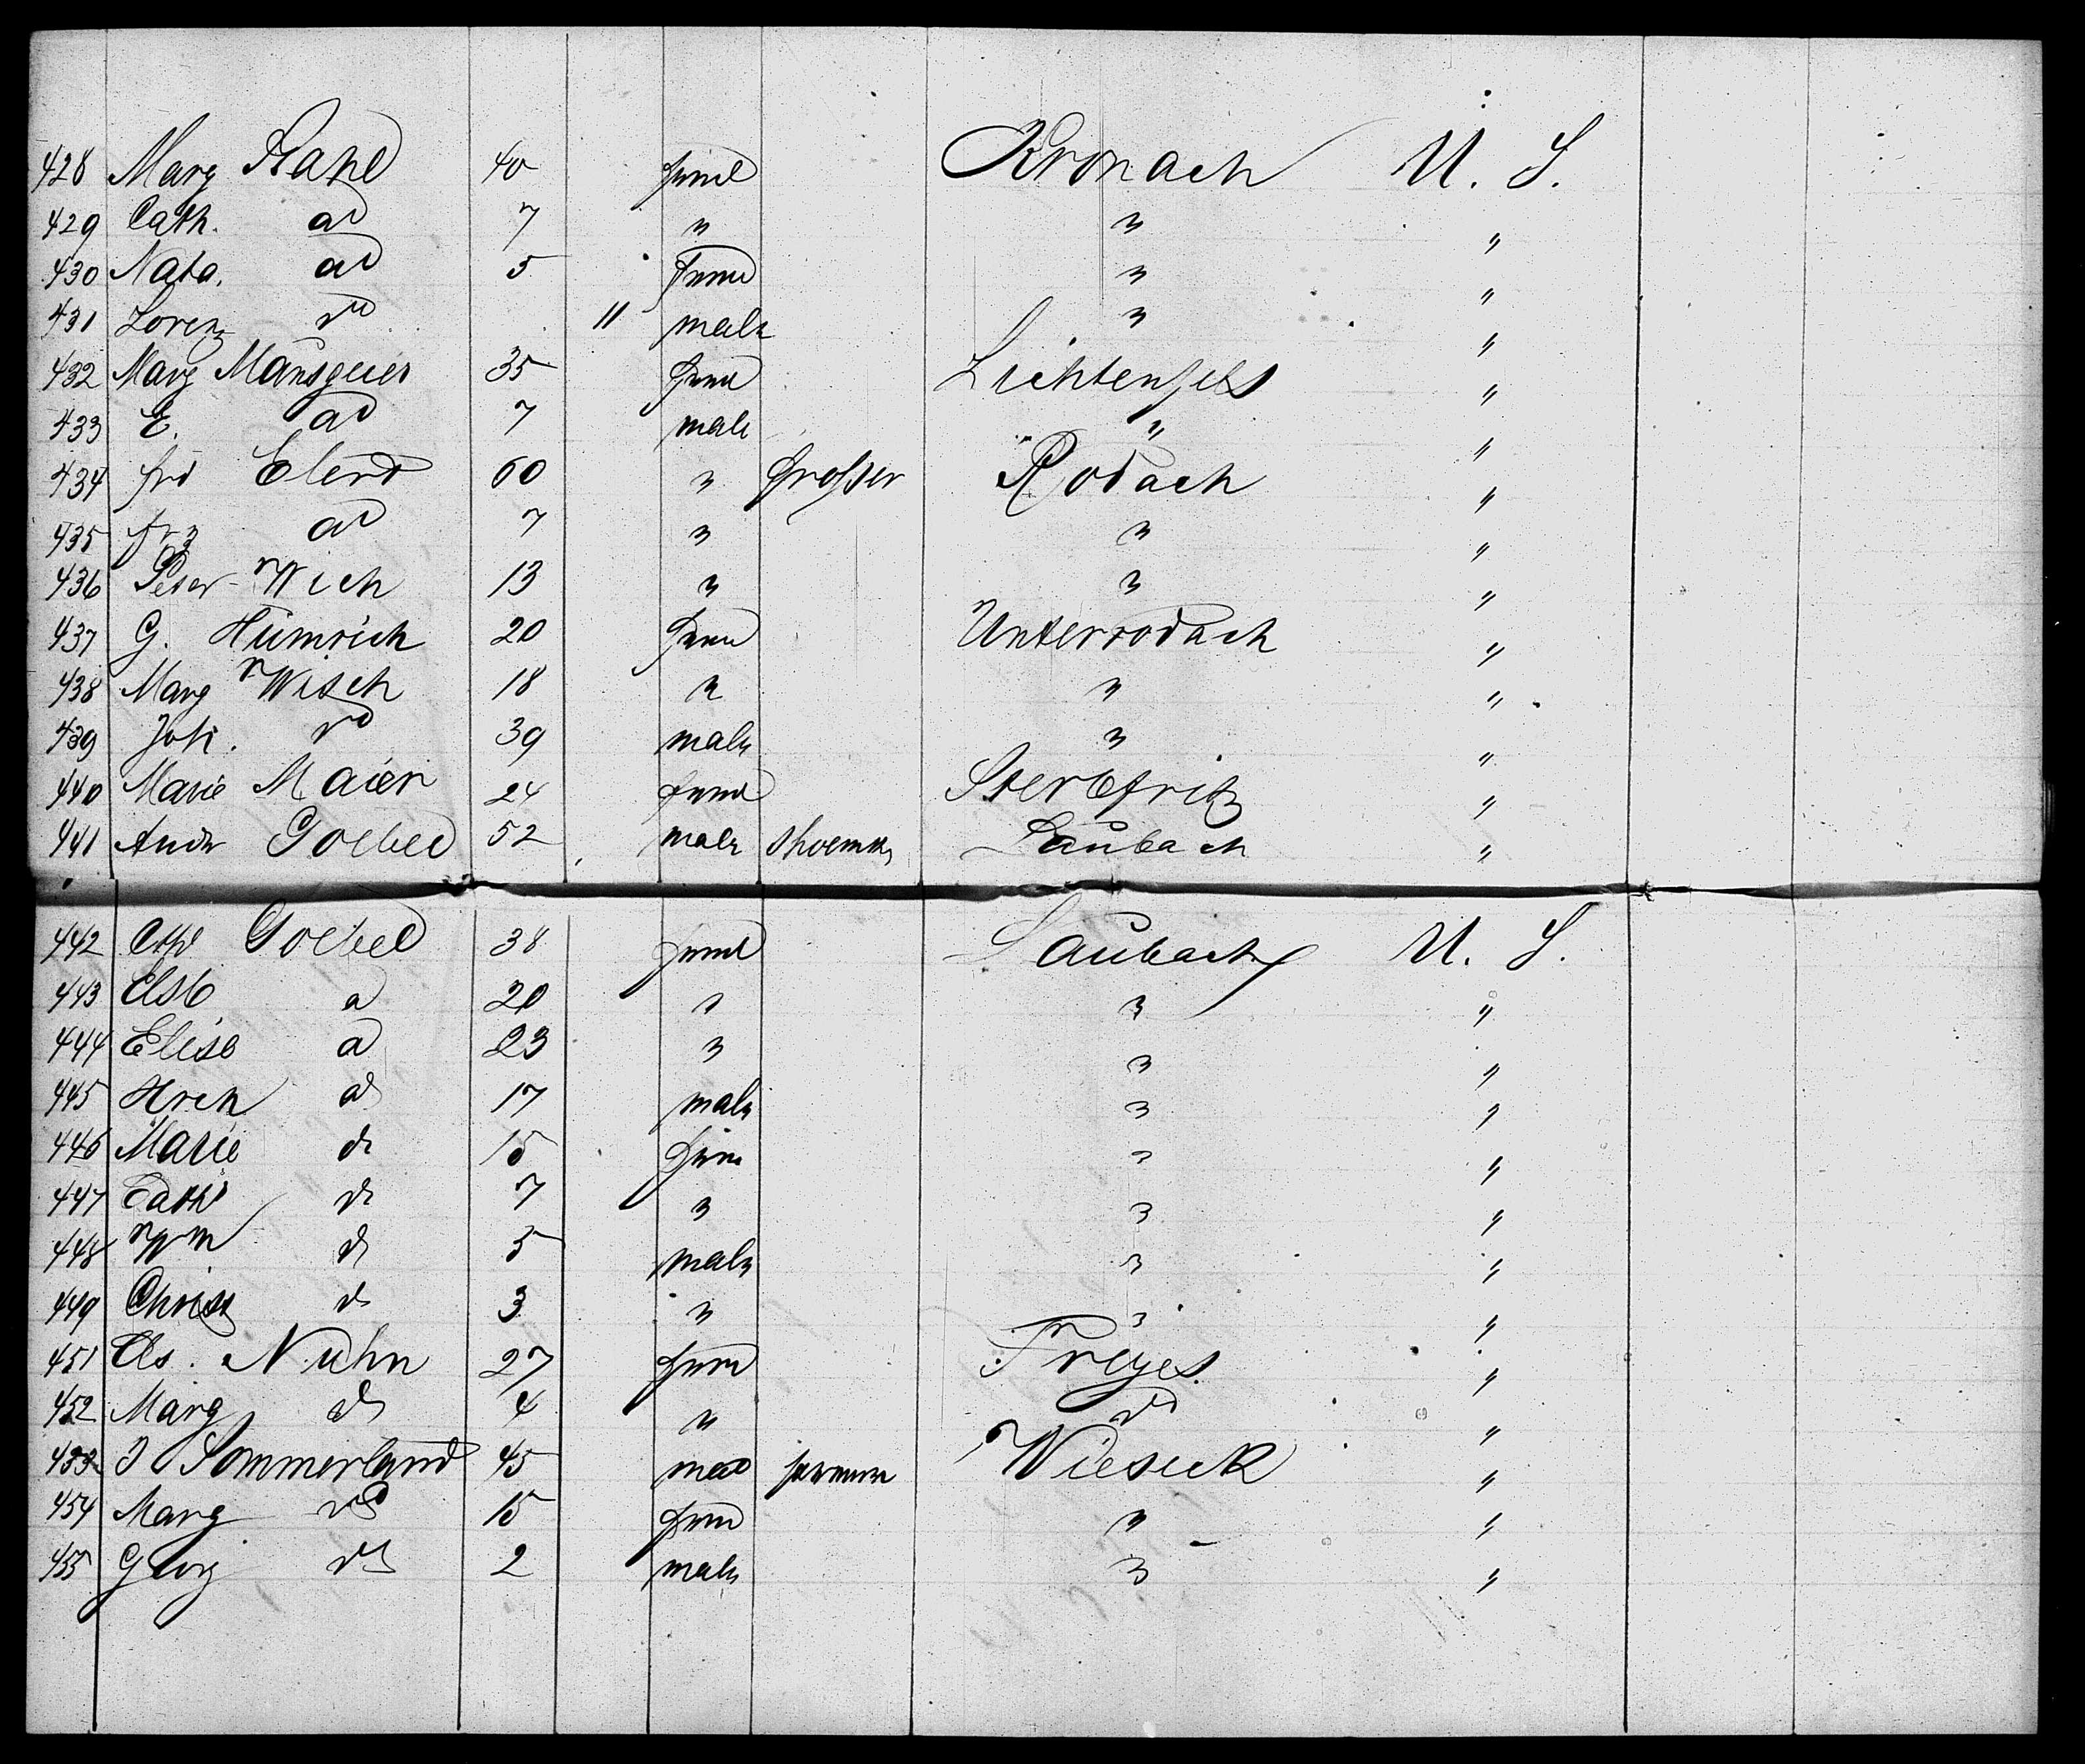 428 Marg 40 feml Kronach U. S.
429 Cath. do 7 " " "
430 do 5 feml " "
431 Lorenz do 11 male " "
432 Marg 35 feml Lichtenfels "
433 E. do 7 male " "
434 frd Elert 60 " Rodach "
435 frz do 7 " " "
436 Peter Wich 13 " " "
437 G. Hümrich 20 feml Unterrodach "
438 Marg Wisch 18 " " "
439 Joh. do 39 male " "
440 Marie Maier 24 feml Sterbfritz "
441 Andr Goebel 52 male shoemkr Laubach "
442 Cth Goebel 38 feml Laubach U. S.
443 Else d 20 " " "
444 Elise d 23 " " "
445 Hrch do 17 male " "
446 Marie do 15 fem " "
447 Cath do 7 " " "
448 Wm do 5 male " "
449 Christ do 3 " " "
451 Els. Nuhn 27 feml "
452 Marg do 4 " do "
453 J Sommerland 45 mal Wieseck "
454 Marg do 15 feml " "
455 Georg do 2 male " "